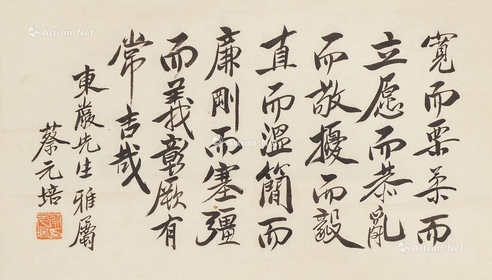 寬而栗柔而
立愿而恭亂
而敬擾而毅
直而溫簡而
廉剛而塞彊
而義彰厥有
常吉哉
東巖先生雅屬
蔡元培
Artron.Net
Artron.Net